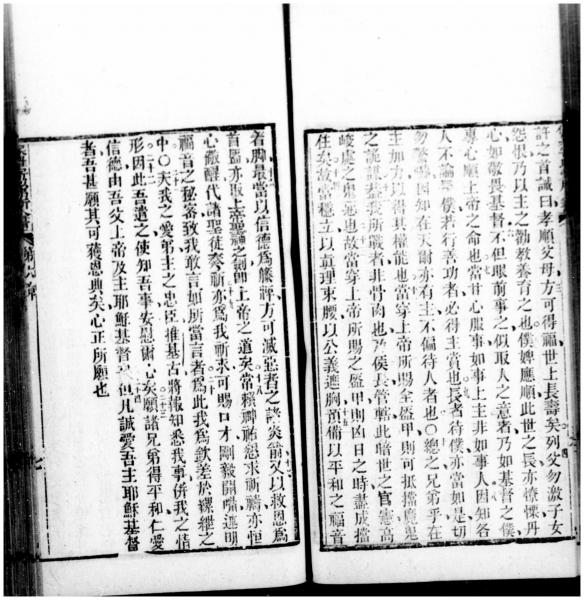 許之首誡曰孝順父母方可得福世上長壽矣列父勿激子女
怨恨乃以主之勸教養育之也僕婢應順此世之長亦懔慄丹
心如敬畏基督不但眼前事之似取人之意者乃如基督之僕
專心順上帝之命也當甘心服事如事上主非如事人因知各
人不論僕若行善功者必得主賞也長者待僕亦當如是切
勿嚇喝因知在天爾亦有主不偏待人者也〇總之兄弟乎在
主加力方以得其權能也當穿上帝所賜全盔甲則可抵擋魔鬼
之詭謀蓋我所戰者非骨肉也乃侯長管轄此暗世之官憲高
峻處之鬼魅也故當穿上帝所賜之盔甲則凶日之時盡成搵
住矣故當穩立以真理束腰以公義遮胸預備以平和之福音
着脚最當以信德爲籐牌方可滅惡者之諸炎箭又以救恩爲
首盔亦取上帝聖神之劍卽上帝之道矣常穆神祐懇求祈禱亦恒
心儆醒代諸聖徒奏祈亦爲我祈求可賜口才剛毅開嘴遜明
福音之秘奧致我敢言如所當言者爲此我爲欽差於縲絏之
中〇夫我之愛弟主之忠臣推基古將報知悉我事併我之情
形因此吾遣之使知吾事安慰爾心矣願諸兄弟得平和仁愛
信德由吾父上帝及主耶穌基督但凡誠愛吾主耶穌基督
者吾甚願其可獲恩典矣心正所願也